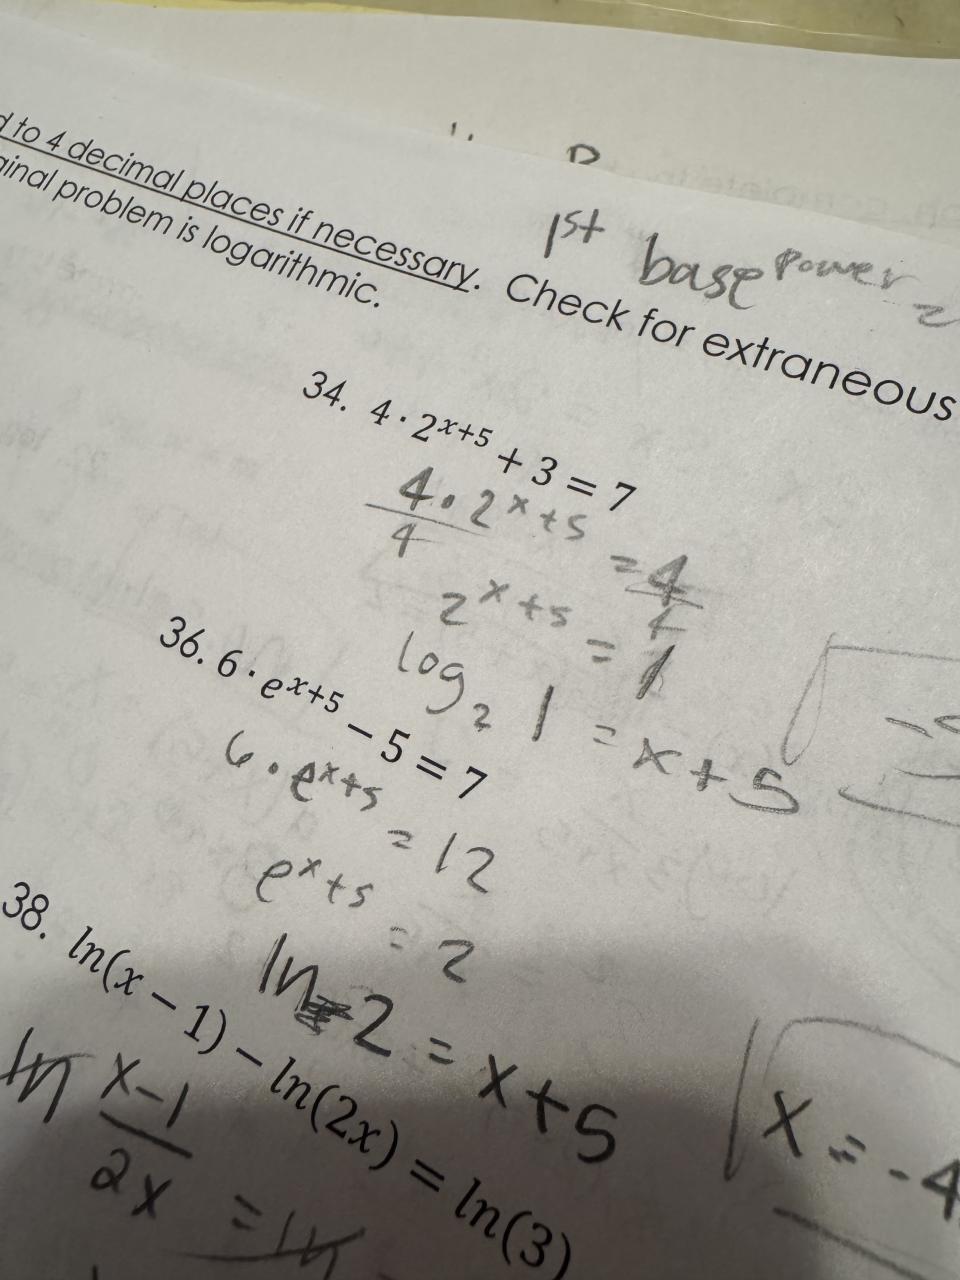 to 4 decimal places if necessary. Check for extraneous
problem is logarithmic.
1st base power =
34. 4 · 2^{x+5} + 3 = 7
4 · 2^{x+5} = 4
4
2^{x+5} = 1
log_2 1 = x + 5
36. 6 · e^{x+5} − 5 = 7
6 · e^{x+5} = 12
e^{x+5} = 2
ln 2 = x + 5
x = -4
38. ln(x − 1) − ln(2x) = ln(3)
ln x-1
2x
= ln